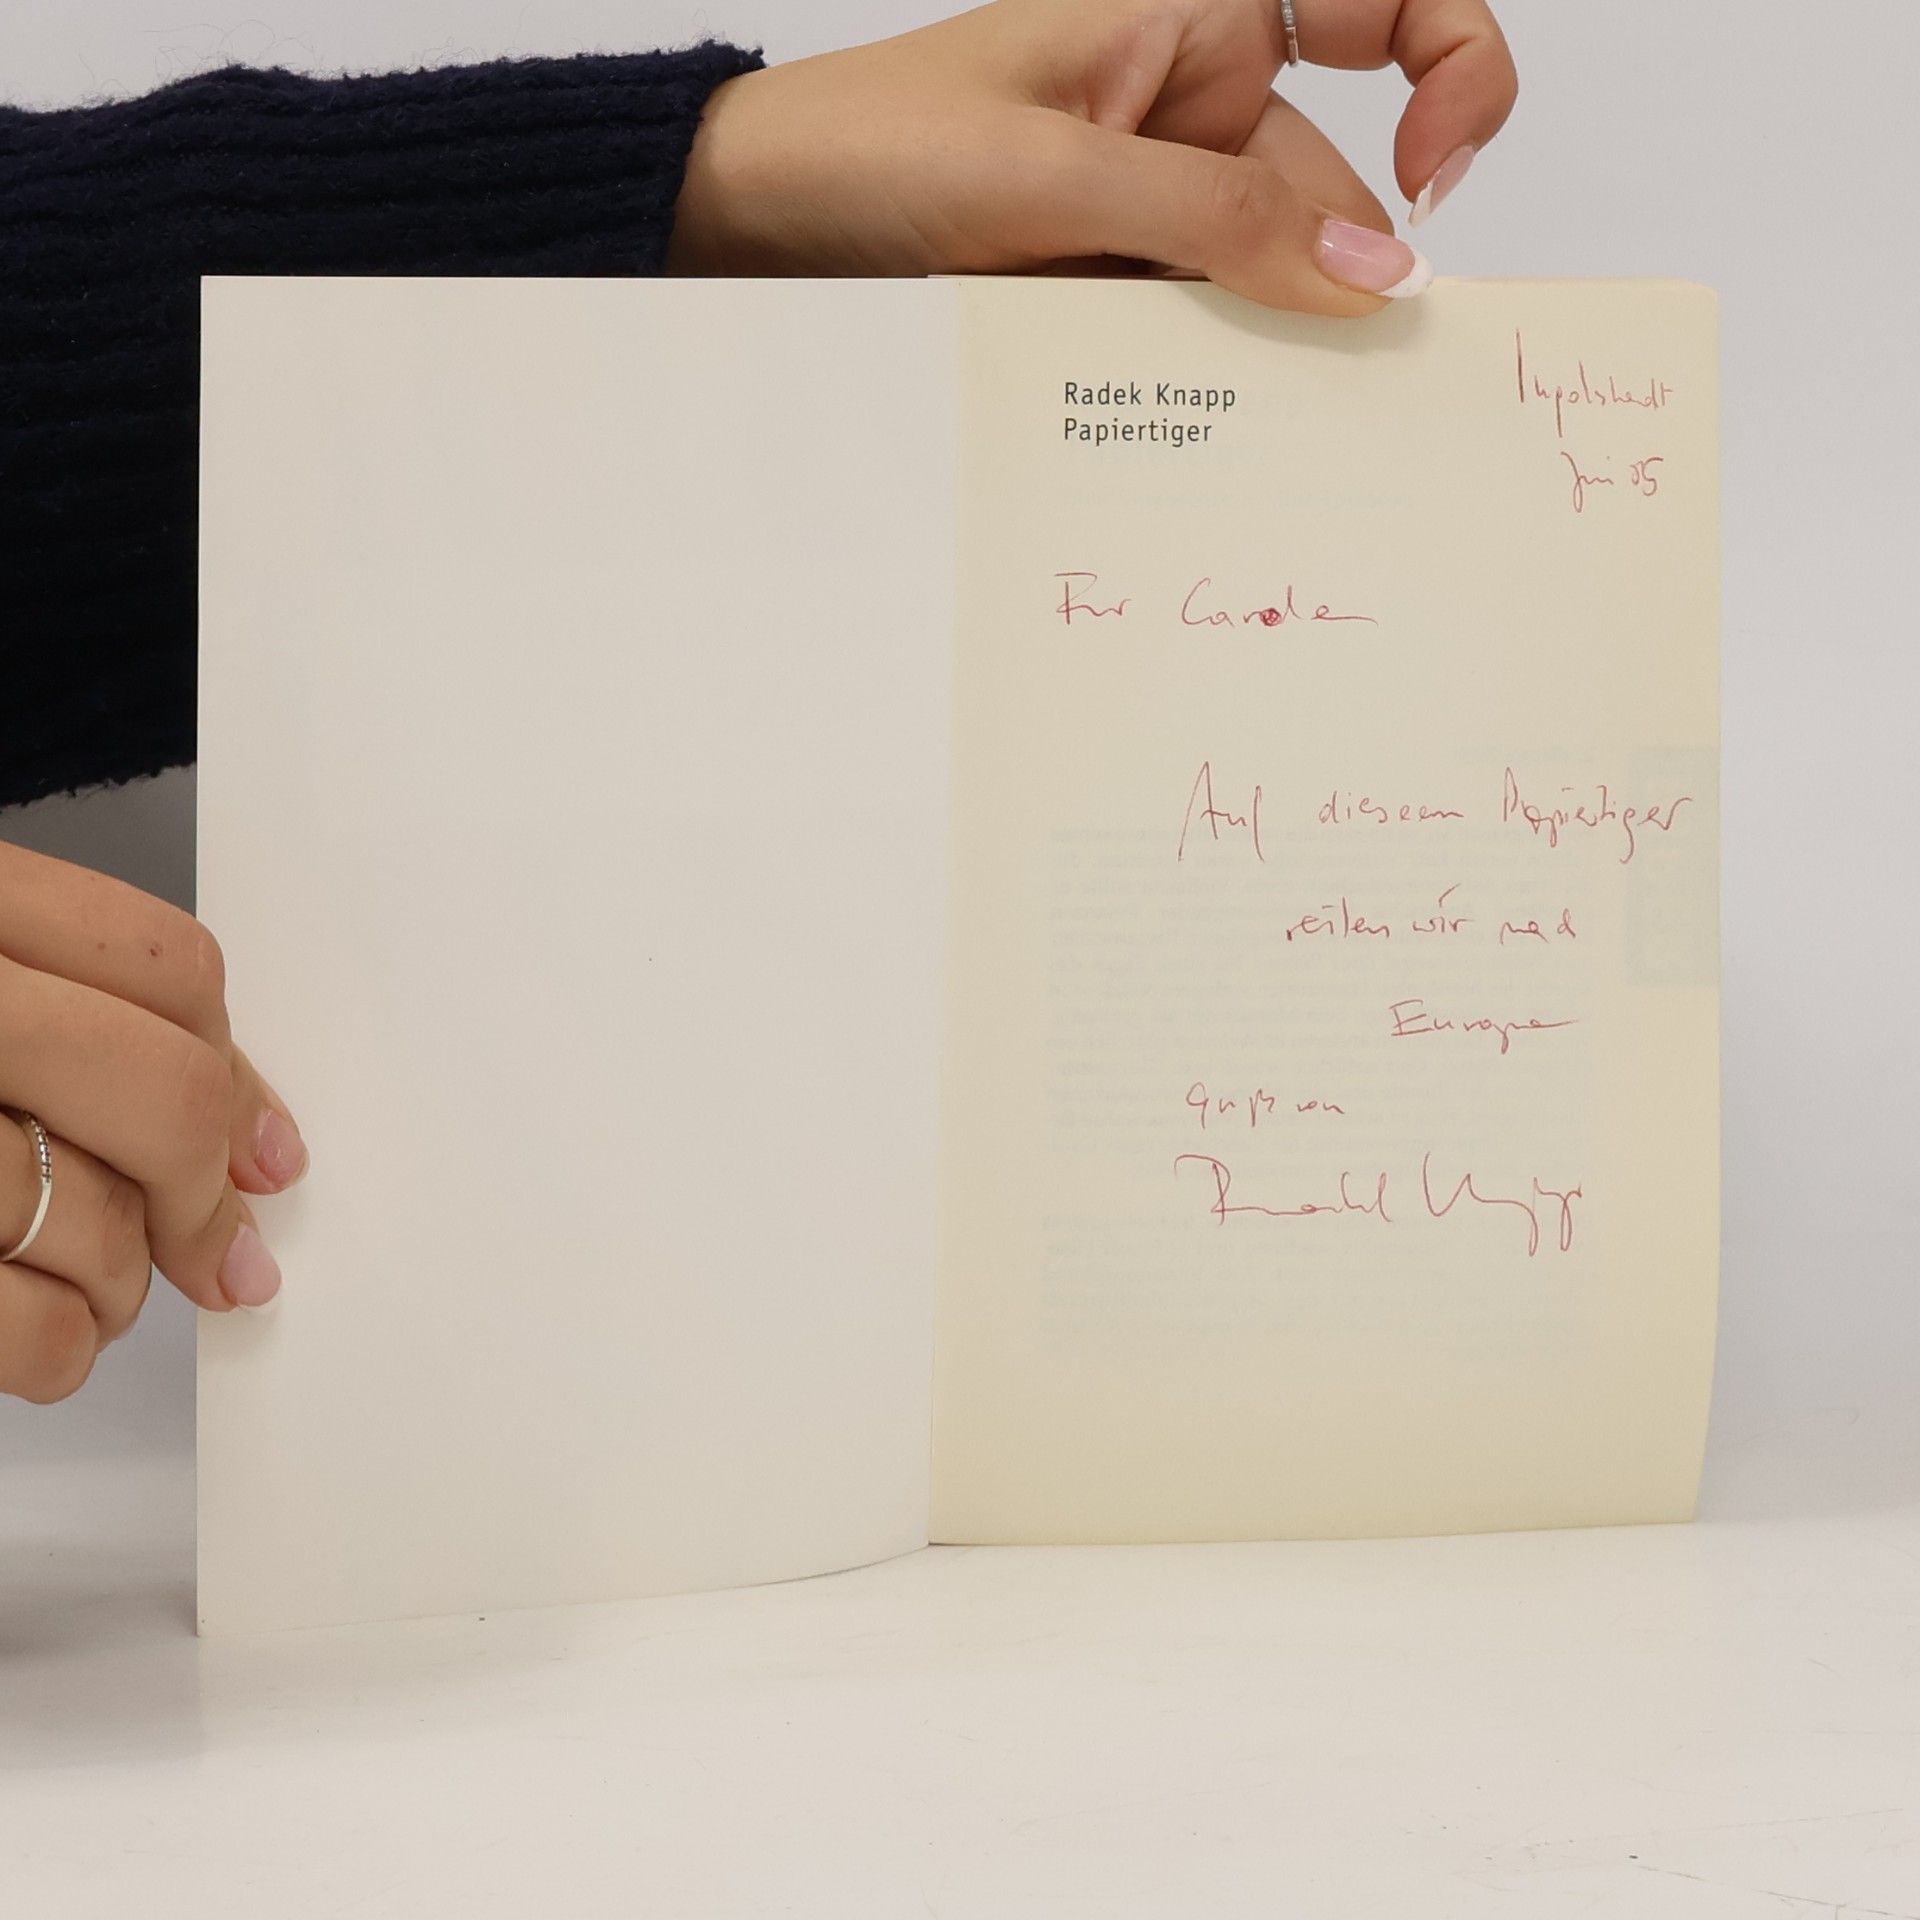 Radek Knapp
Papiertiger
Ingolstadt
Juni 05
Für Carola
Auf diesem Papiertiger
reiten wir nach
Europa
Gruß von
Radek Knapp